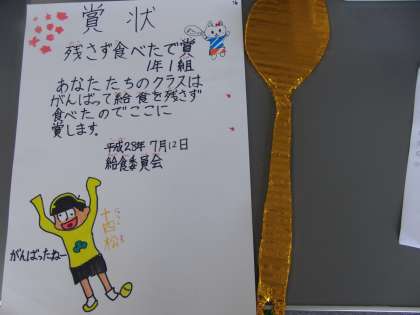 賞状
残さず食べたで賞
1年1組
あなたたちのクラスは
がんばって給食を残さず
食べたのでここに
賞します。
平成28年7月12日
給食委員会
十四松
がんばったねー